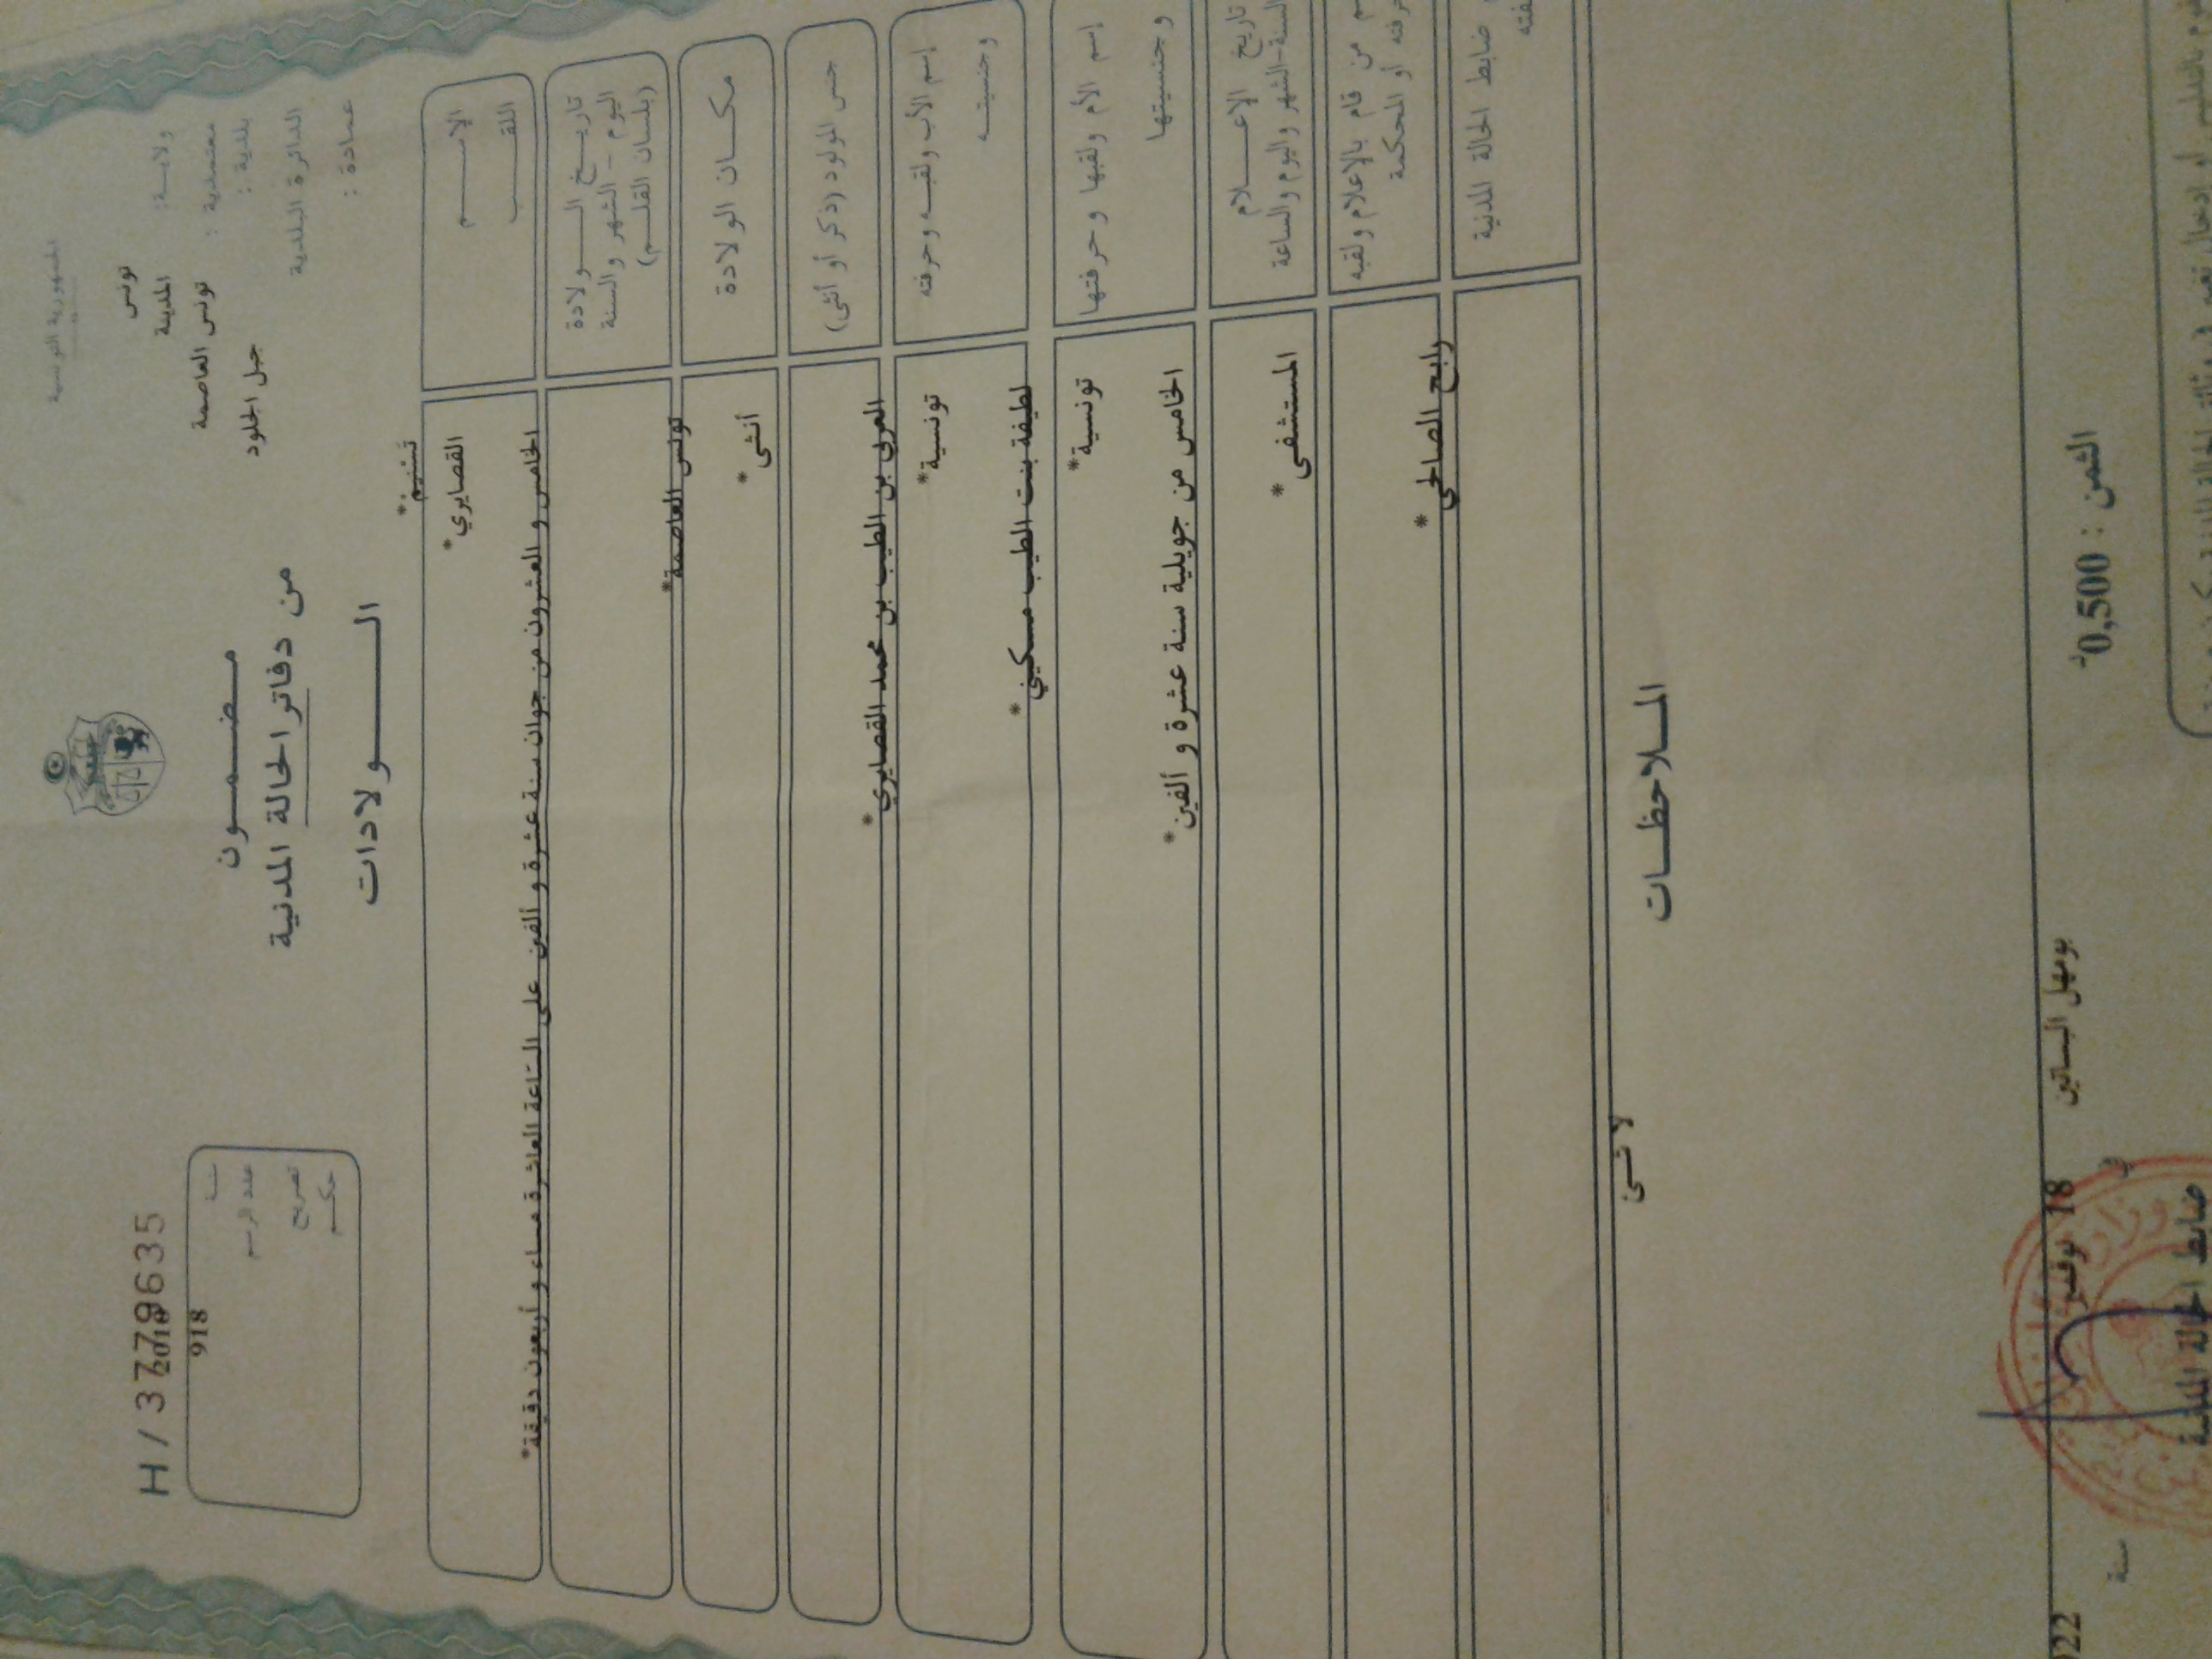 الجمهورية التونسية
ولايـة : تونس
معتمدية : المدينة
بلدية : تونس العاصمة
الدائرة البلدية جبل الجلود
عمادة :
مـضـمـون
من دفاتر الحالة المدنية
الـــــولادات
H / 3779635
سنة 2010
عدد الرسم 918
تصريح
حكـم
الإســـم تَسْنِيم*
اللقـــب القصايري*
تاريـــخ الــــولادة
اليوم - الشهر والسنة
(بلسان القلـــم)
الخامس و العشرون من جوان سنة عشرة و ألفين على الساعة العاشرة مساء و أربعون دقيقة*
مكـــان الولادة
تونس العاصمة*
جنس المولود (ذكر أو أنثى)
أنثى*
إسم الأب ولقبـه وحرفته
وجنسيتـه
العربي بن الطيب بن محمد القصايري*
تونسية*
إسم الأم ولقبها وحرفتها
وجنسيتها
لطيفة بنت الطيب مسكيني*
تونسية*
تاريخ الإعـــلام
السنة-الشهر واليوم والساعة
الخامس من جويلية سنة عشرة و ألفين*
من قام بالإعلام ولقبه
أو المحكمة
المستشفى*
ضابط الحالة المدنية
رابح الصالحي*
المـلاحظـات
لا شيئ
بومهل البساتين في 18 نوفمبر سنة
ضابط الحالة المدنية
الثمن : 0,500د